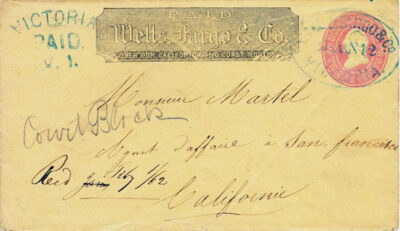 VICTORIA
PAID.
V. I.
PAID
Wells, Fargo & Co.
OVER OUR CALIFORNIA AND COAST ROUTES
FARGO & Co
JAN 12
VICTORIA.
Monsieur Martel
Court Block
Agent d'affaire à San francisco
Recd Feby 1/62
Californie